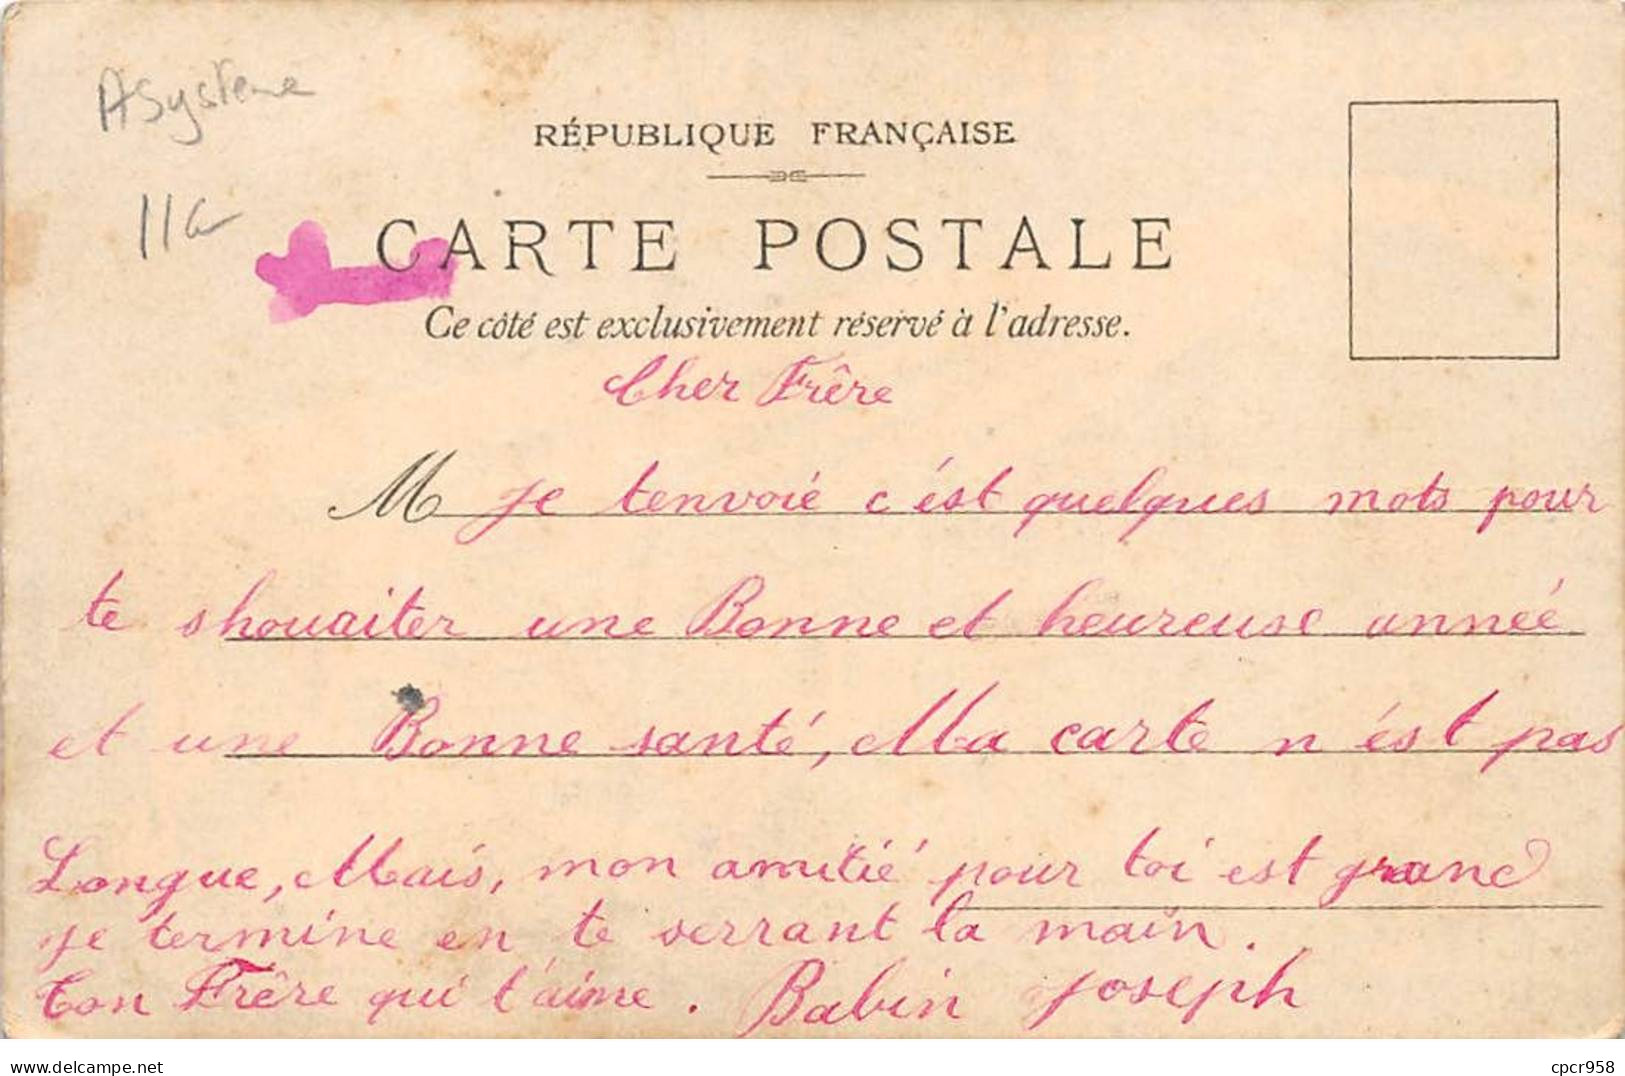 A Système
RÉPUBLIQUE FRANÇAISE
CARTE POSTALE
Ce côté est exclusivement réservé à l'adresse.
Cher Frère
M je tenvoié c'ést quelques mots pour
te shouaiter une Bonne et heureuse année
et une Bonne santé, Ma carte n'ést pas
Longue, Mais, mon amitié pour toi est grand
je termine en te serrant la main.
Ton Frère qui t'aime. Babin Joseph
www.delcampe.net
cpcr958